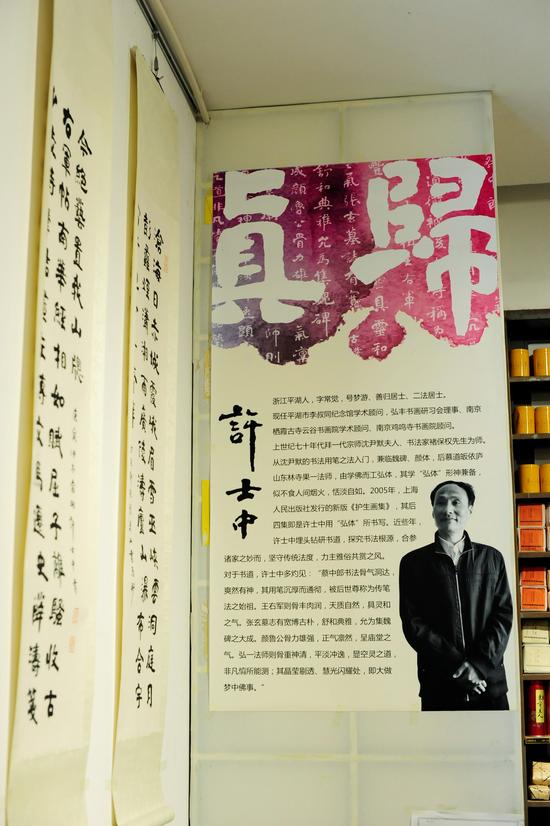 歸真
許士中
浙江平湖人，字常觉，号梦游、善归居士、二法居士。
现任平湖市李叔同纪念馆学术顾问，弘丰书画研习会理事、南京
栖霞古寺云谷书画院学术顾问、南京鸡鸣寺书画院顾问。
上世纪七十年代拜一代宗师沈尹默夫人、书法家褚保权先生为师。
从沈尹默的书法用笔之法入门，兼临魏碑、颜体，后慕道皈依庐
山东林寺果一法师，由学佛而工弘体，其学“弘体”形神兼备，
似不食人间烟火，恬淡自如。2005年，上海
人民出版社发行的新版《护生画集》，其后
四集即是许士中用“弘体”所书写。近些年，
许士中埋头钻研书道，探究书法根源，合参
诸家之妙而，坚守传统法度，力主雅俗共赏之风。
对于书道，许士中多灼见：“蔡中郎书法骨气洞达，
爽然有神，其用笔沉厚而通彻，被后世尊称为传笔
法之始祖。王右军则骨丰肉润，天质自然，具灵和
之气。张玄墓志有宽博古朴，舒和典雅，允为集魏
碑之大成。颜鲁公骨力雄强，正气凛然，呈庙堂之
气。弘一法师则骨重神清，平淡冲逸，显空灵之道，
非凡惦所能测；其晶莹剔透、慧光闪耀处，即大做
梦中佛事。”
今絕藝置我山牕
右軍帖南華經相如賦屈子離騷收古
滄海日赤城霞峨眉雪巫峽雲洞庭月
彭蠡煙瀟湘雨廣陵濤廬山瀑布合宇